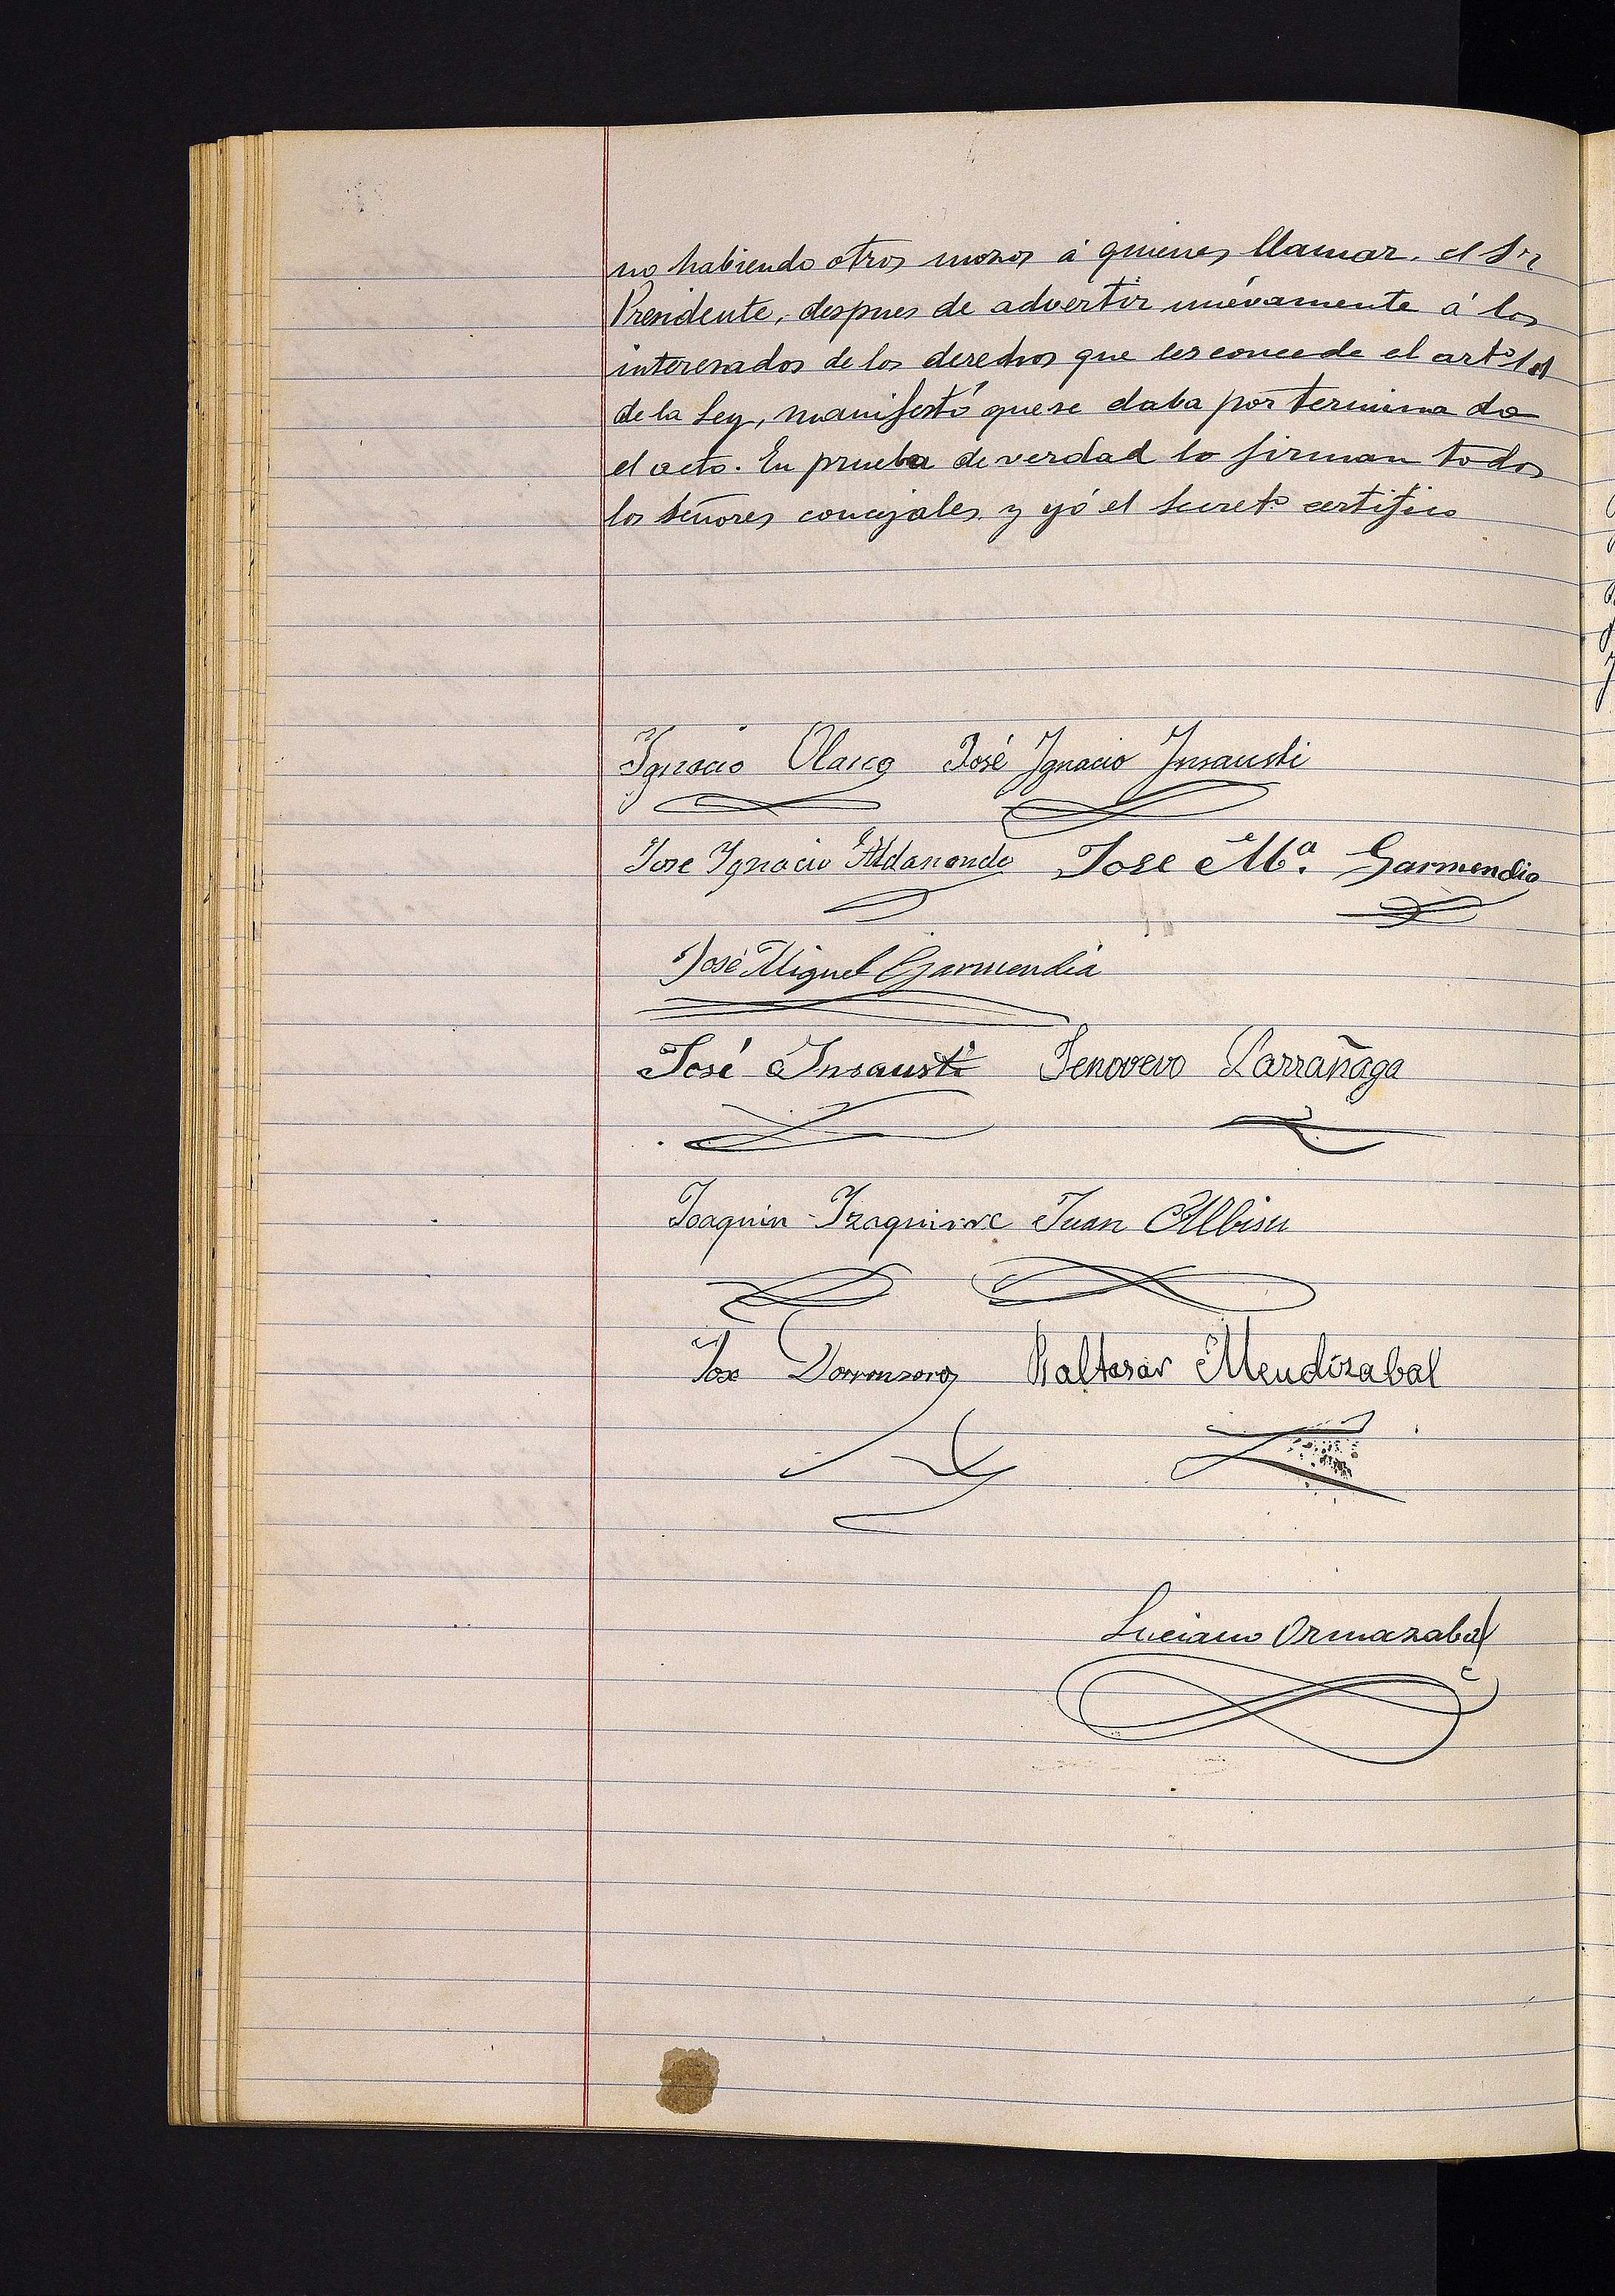 no habiendo otros mozos á quienes llamar, el Sr
Presidente, despues de advertir nuévamente á los
interesados de los derechos que les concede el artº 101
de la Ley, manifestó que se daba por termina do
el acto. En prueba de verdad lo firman todos
los señores concejales y yó el Secretº certifico
Ignacio Olano José Ignacio Insausti
Jose Ignacio Aldanondo Jose Mª. Garmendia
José Miguel Garmendia
José Insausti Jenovevo Larrañaga
Joaquin Izaguirre Juan Albisu
Jose Dorronsoro Baltasar Mendizabal
Luciano Ormazabal